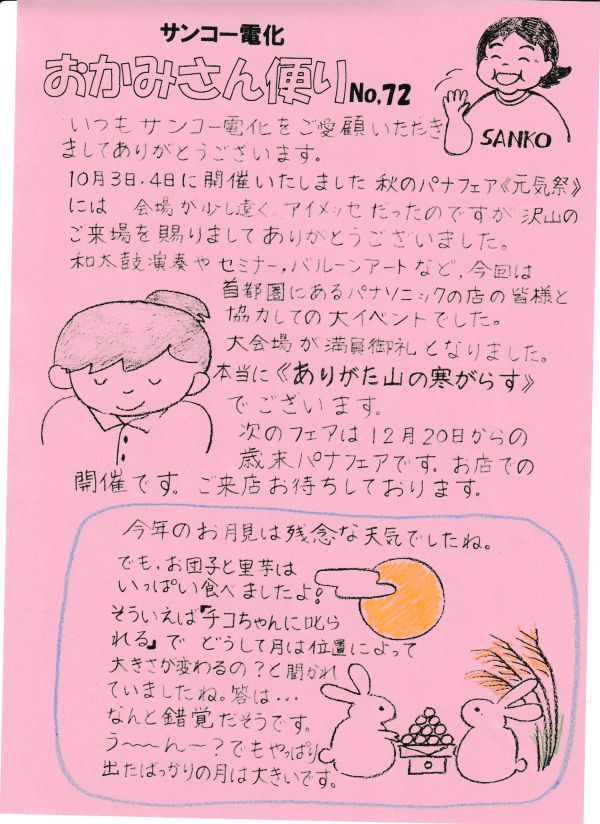 サンコー電化
おかみさん便り No,72
SANKO
いつもサンコー電化をご愛顧いただき
ましてありがとうございます。
10月3日,4日に開催いたしました 秋のパナフェア《元気祭》
には 会場が少し遠く、アイメッセだったのですが沢山の
ご来場を賜りましてありがとうございました。
和太鼓演奏やセミナー,バルーンアートなど,今回は
首都圏にあるパナソニックの店の皆様と
協力しての大イベントでした。
大会場が満員御礼となりました。
本当に《ありがた山の寒がらす》
でございます。
次のフェアは12月20日からの
歳末パナフェアです。お店での
開催です。ご来店お待ちしております。
今年のお月見は残念な天気でしたね。
でも,お団子と里芋は
いっぱい食べましたよ!
そういえば『チコちゃんに叱ら
れる』で どうして月は位置によって
大きさが変わるの?と聞かれ
ていましたね。答は...
なんと錯覚だそうです。
う〜〜ん〜?でもやっぱり
出たばっかりの月は大きいです。